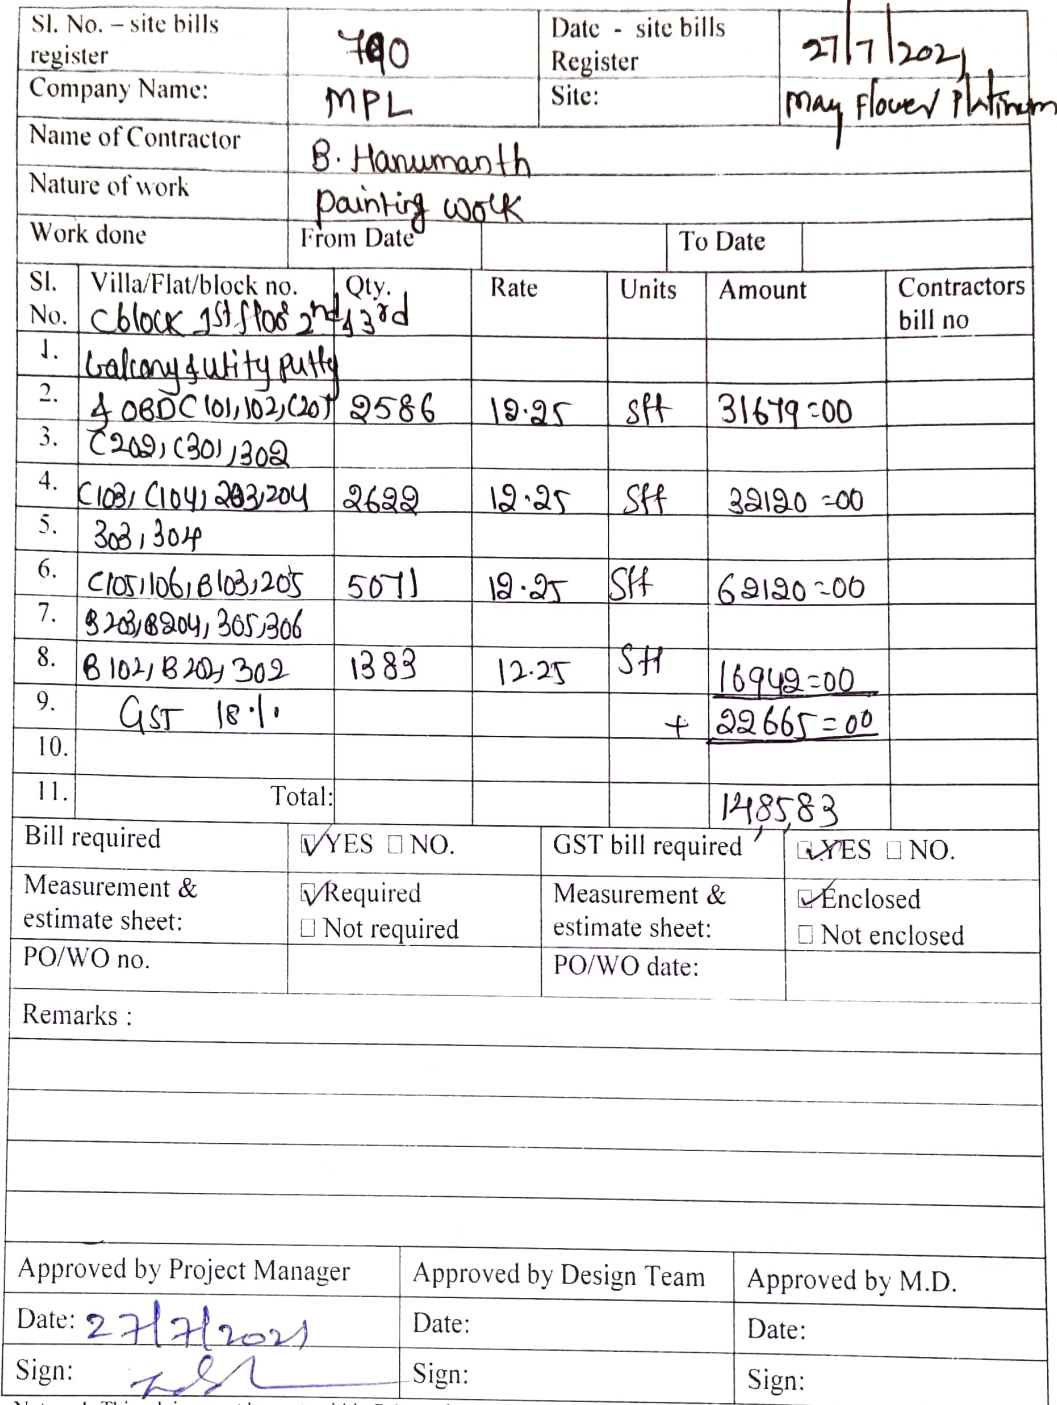 Sl. No. – site bills register 790 Date - site bills Register 27/7/2021
Company Name: MPL Site: May Flower Platinum
Name of Contractor B. Hanumanth
Nature of work Painting work
Work done From Date To Date
Sl. No. Villa/Flat/block no. Qty. Rate Units Amount Contractors bill no
C block 1st floor 2nd & 3rd
1. balcony & utity putty
2. & OBD C101, 102, C201 2586 12.25 sft 31679=00
3. C202, C301, 302
4. C103, C104, 203, 204 2622 12.25 Sft 32120=00
5. 303, 304
6. C105, 106, B103, 205 5071 12.25 Sft 62120=00
7. B203, B204, 305, 306
8. B102, B202, 302 1383 12.25 Sft 16942=00
9. GST 18 % + 22665=00
10.
11. Total: 1,48,583
Bill required ☑ YES ☐ NO. GST bill required ☑ YES ☐ NO.
Measurement & estimate sheet: ☑ Required ☐ Not required Measurement & estimate sheet: ☑ Enclosed ☐ Not enclosed
PO/WO no. PO/WO date:
Remarks :
Approved by Project Manager Approved by Design Team Approved by M.D.
Date: 27/7/2021 Date: Date:
Sign: Sign: Sign: